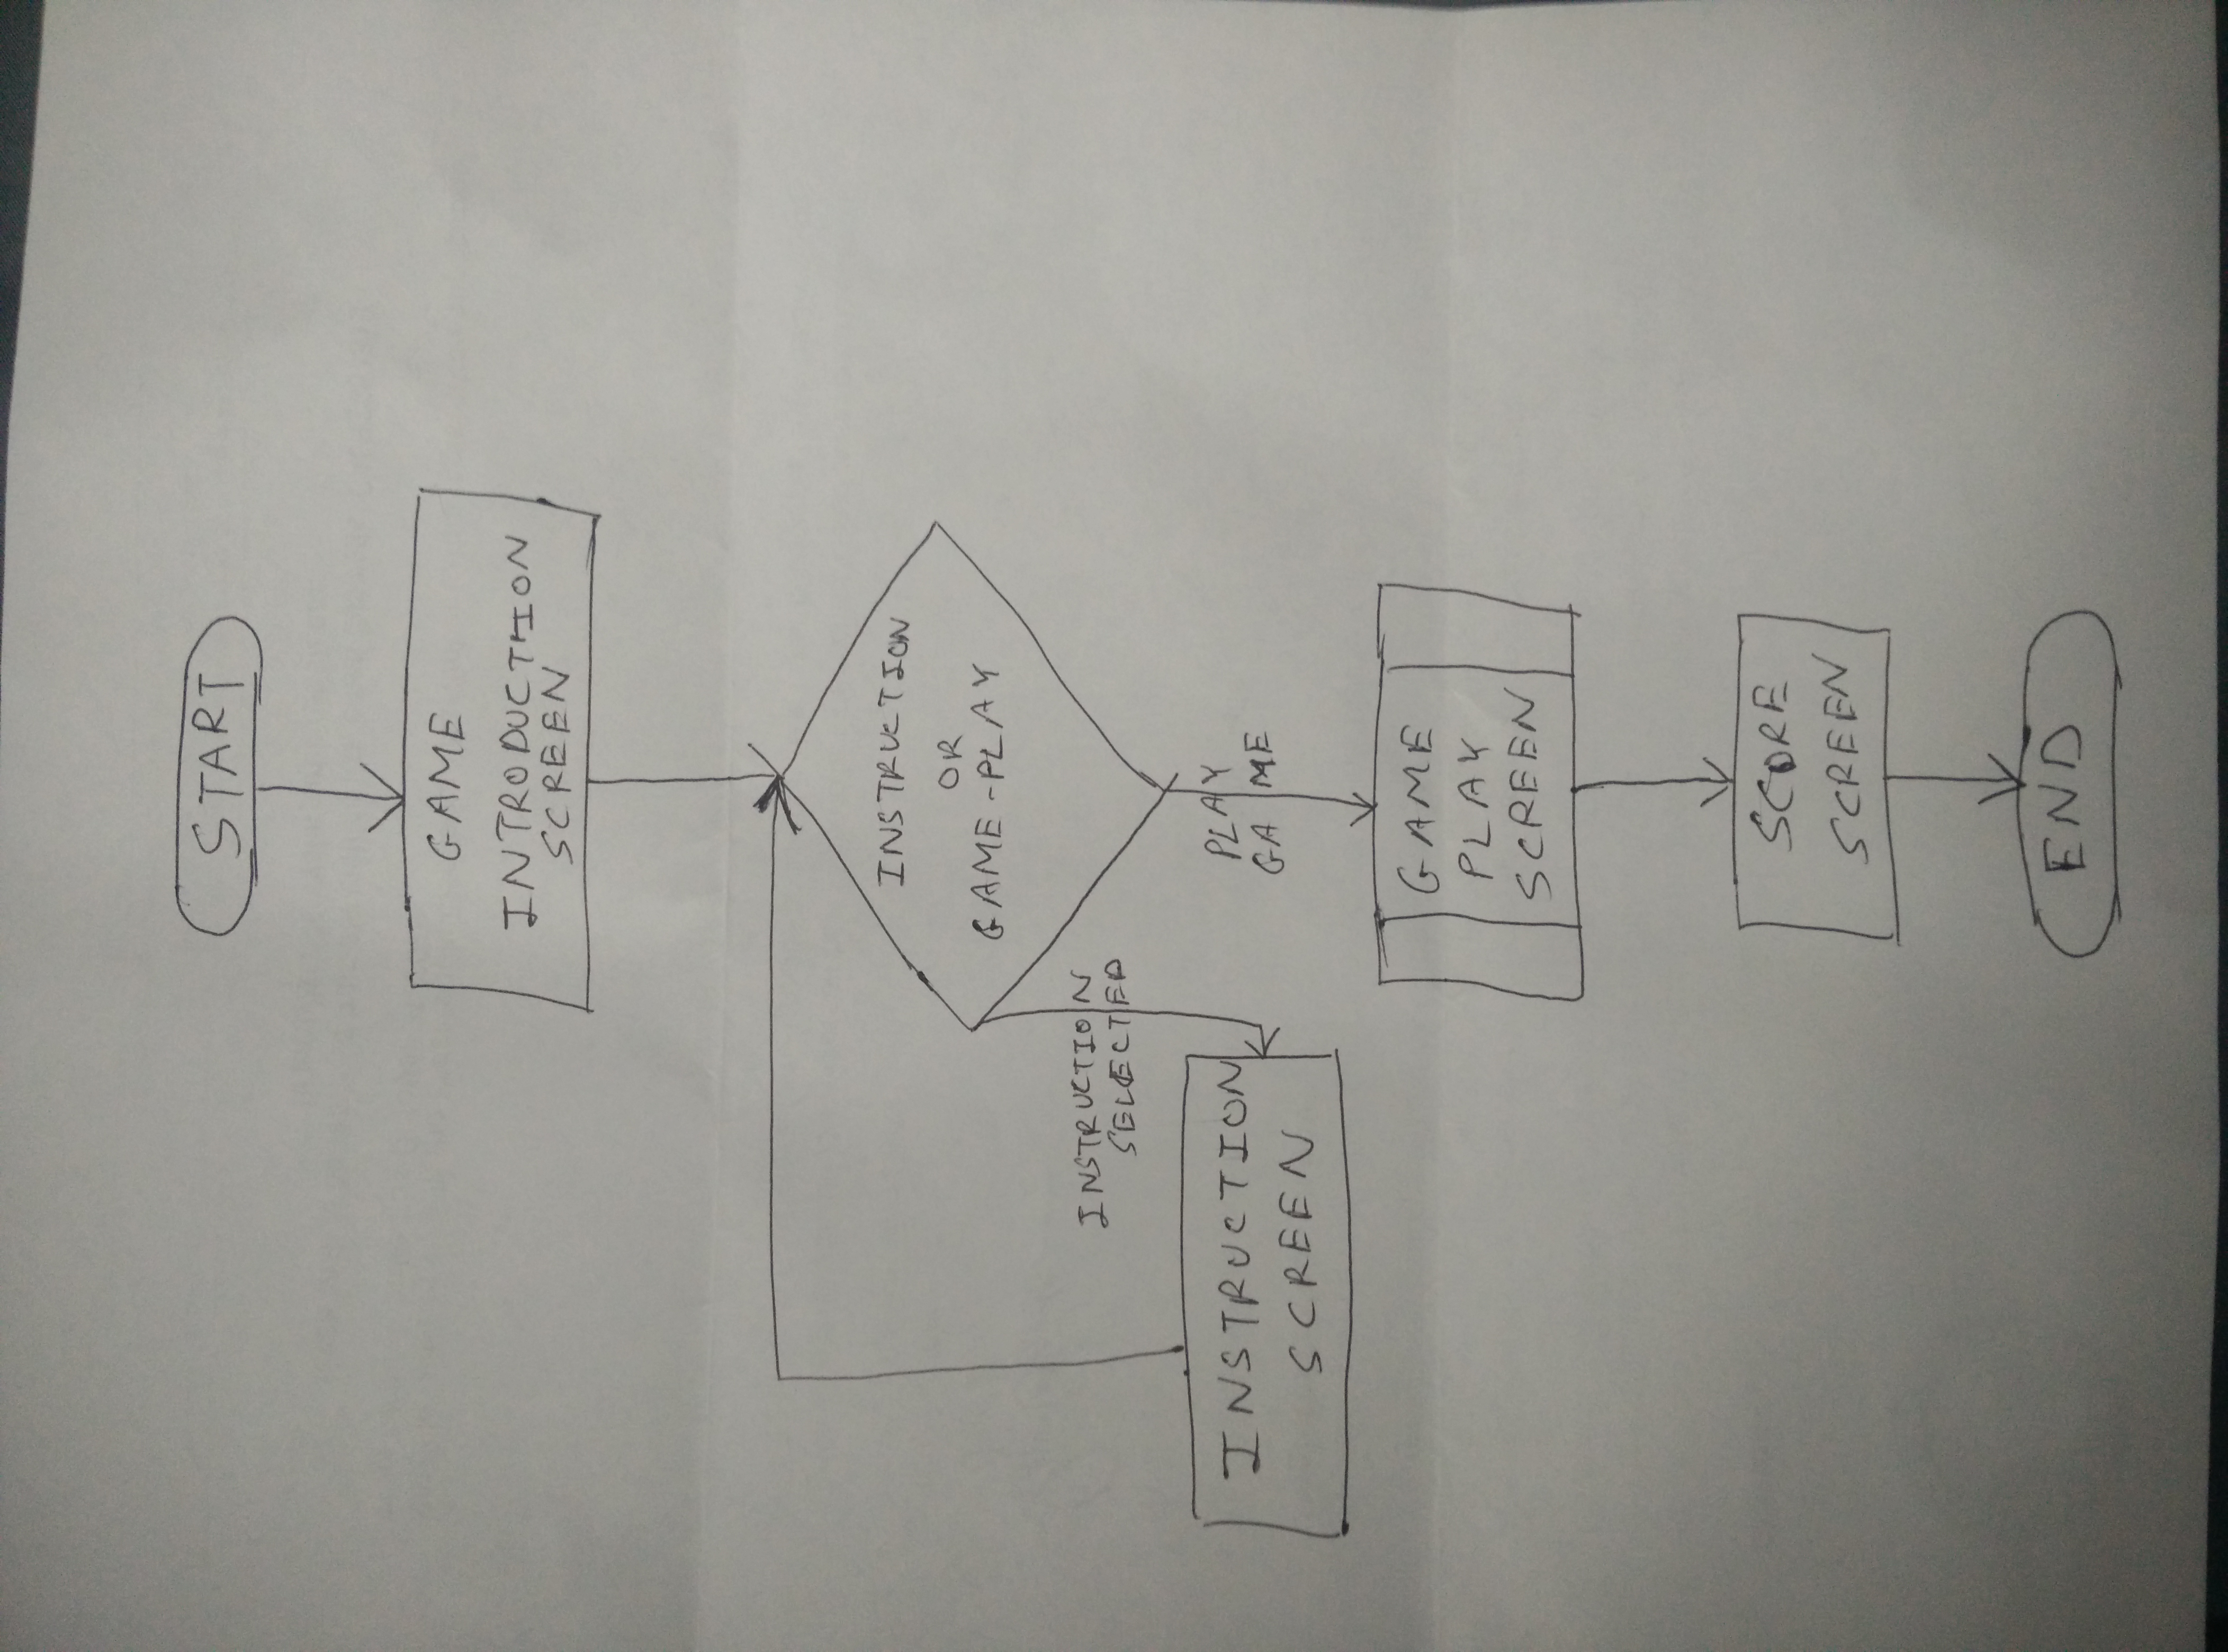 START
GAME
INTRODUCTION
SCREEN
INSTRUCTION
OR
GAME-PLAY
INSTRUCTION
SELECTED
INSTRUCTION
SCREEN
PLAY
GAME
GAME
PLAY
SCREEN
SCORE
SCREEN
END